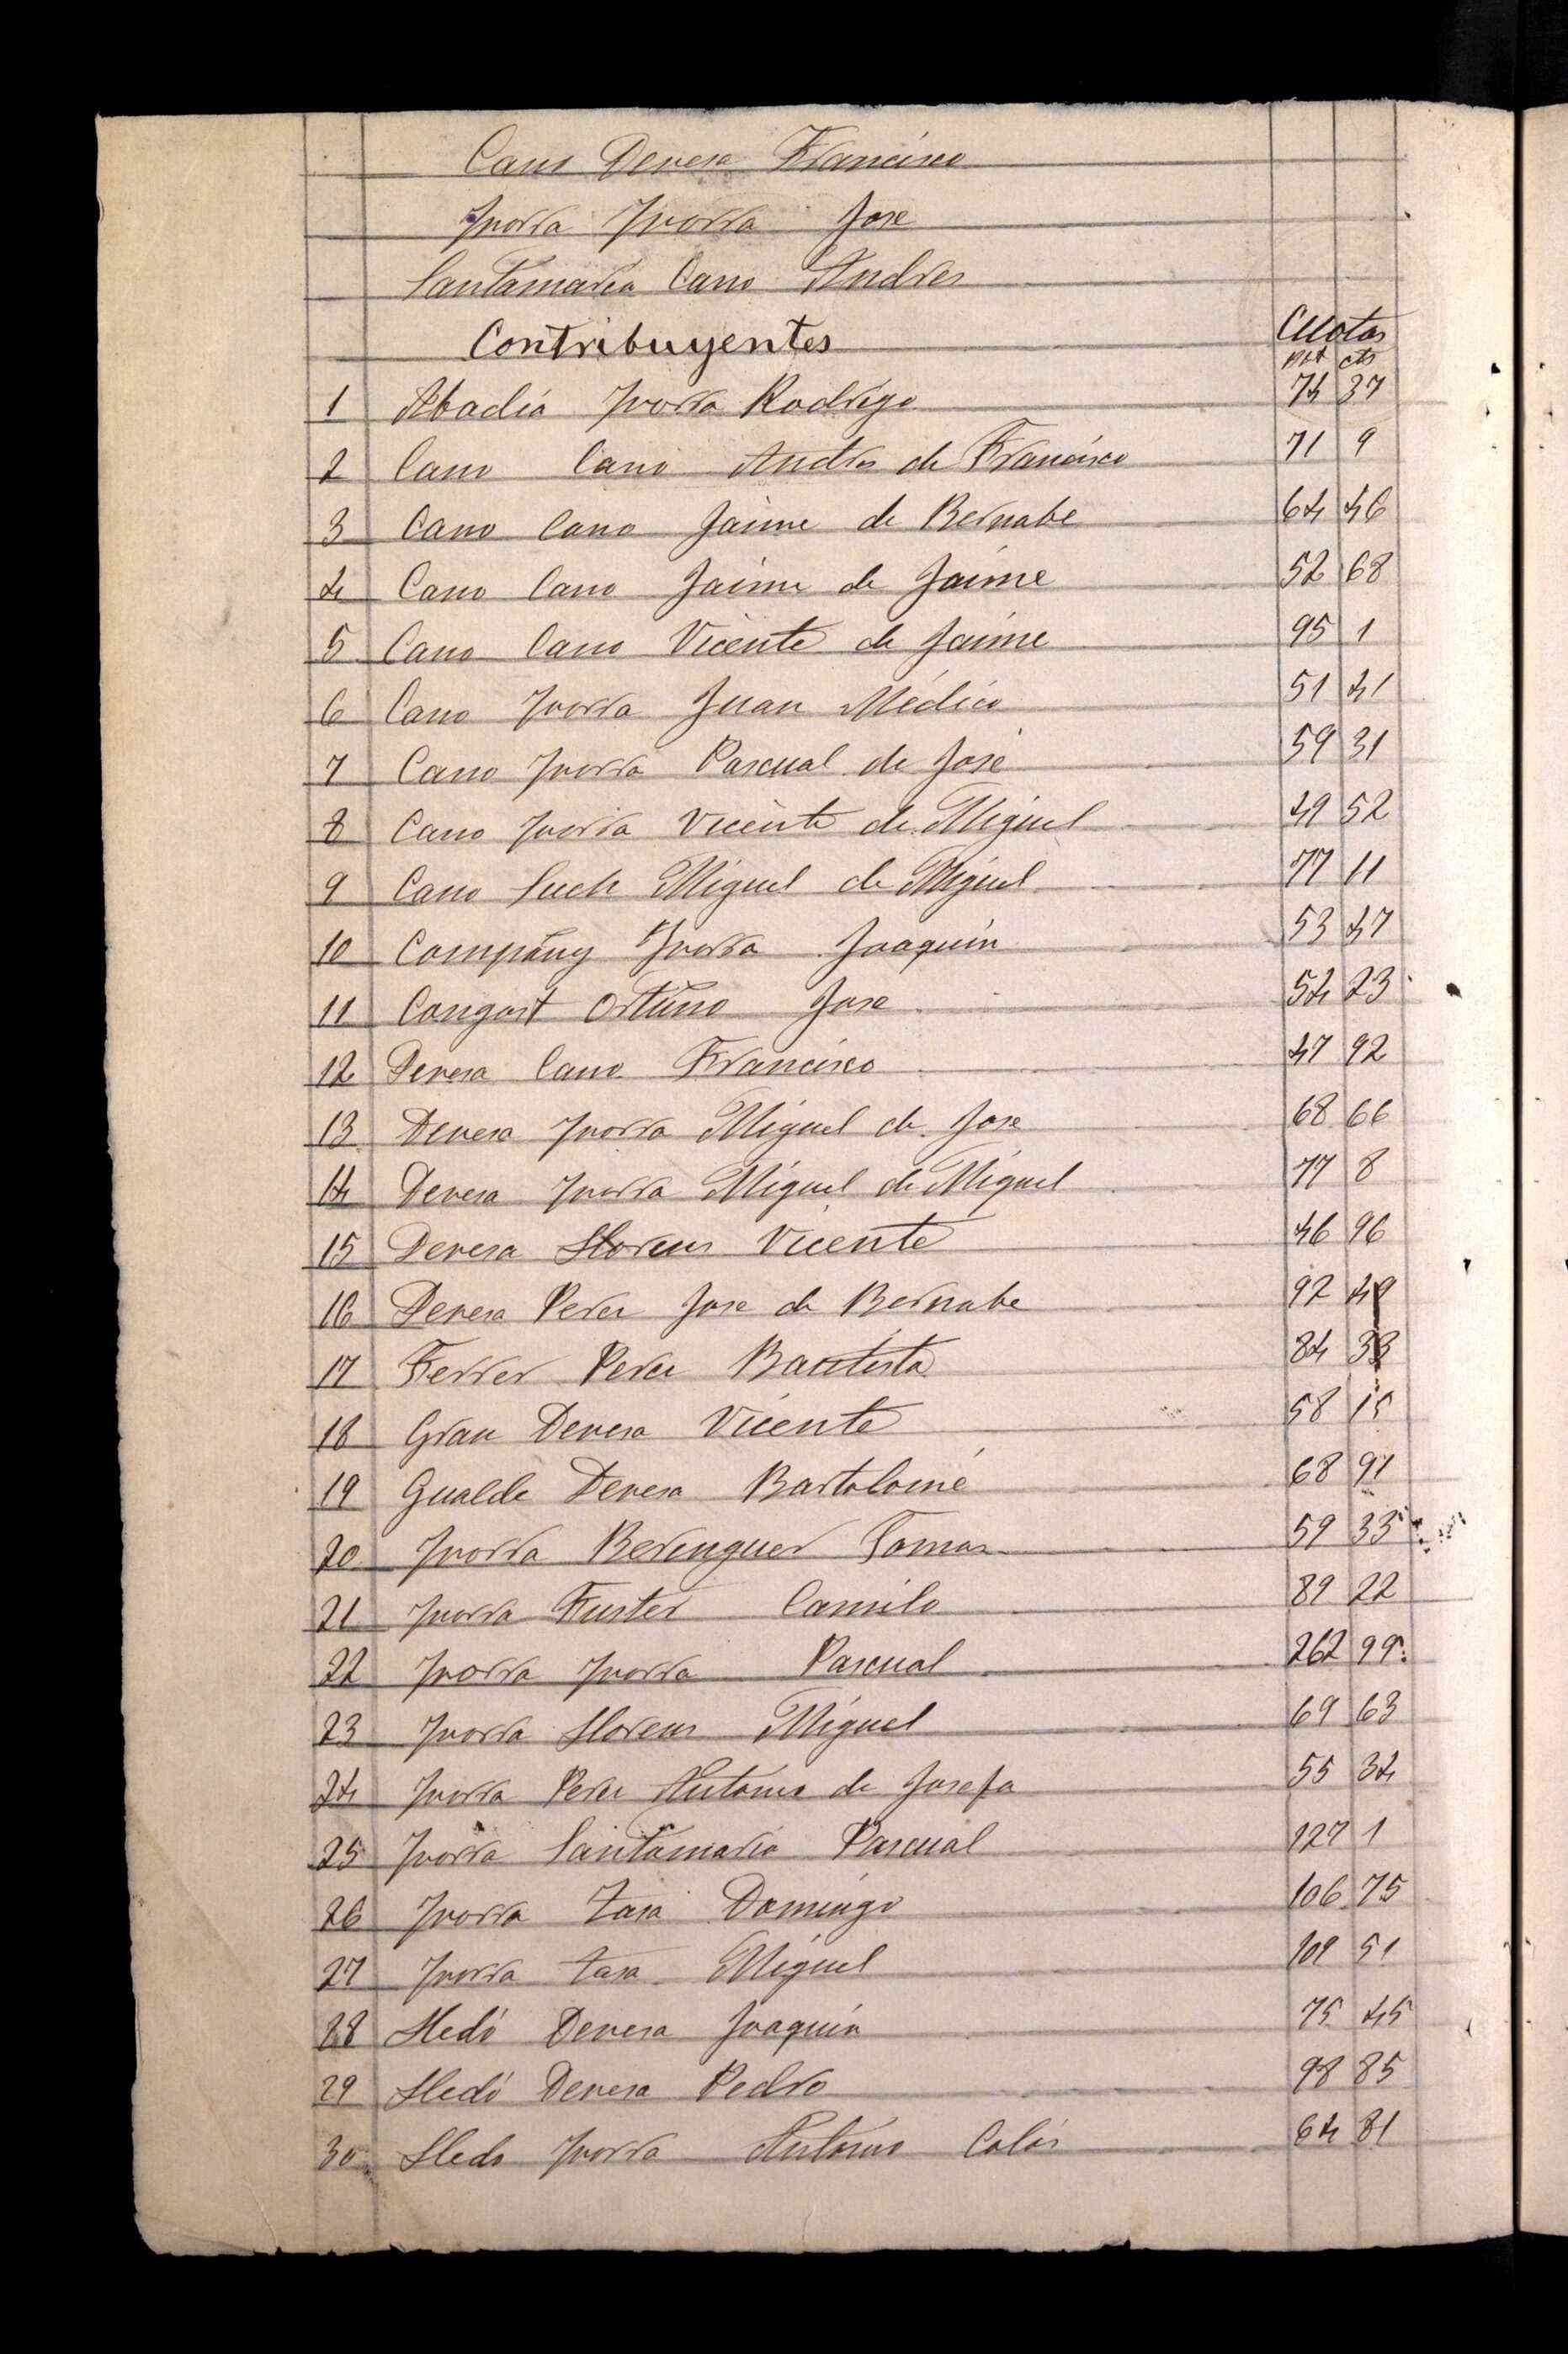 Cano Devesa Francisco
Ivorra Ivorra Jose
Santamaria Cano Andres
Contribuyentes Cuotas
Pts cts
1 Abadia Ivorra Rodrigo 74 37
2 Cano Cano Andres de Francisco 71 9
3 Cano Cano Jaime de Bernabe 64 46
4 Cano Cano Jaime de Jaime 52 68
5 Cano Cano Vicente de Jaime 95 1
6 Cano Ivorra Juan Médico 51 41
7 Cano Ivorra Pascual de José 59 31
8 Cano Ivorra Vicente de Miguel 49 52
9 Cano Such Miguel de Miguel 77 11
10 Company Ivorra Joaquin 53 47
11 Congost Ortuño Jose 54 23
12 Devesa Cano Francisco 47 92
13 Devesa Ivorra Miguel de Jose 68 66
14 Devesa Ivorra Miguel de Miguel 77 8
15 Devesa Llorens Vicente 46 96
16 Devesa Perez Jose de Bernabe 92 49
17 Ferrer Perez Bautista 84 33
18 Grau Devesa Vicente 58 15
19 Gualde Devesa Bartolomé 68 91
20 Ivorra Berenguer Tomas 59 33
21 Ivorra Fuster Camilo 89 22
22 Ivorra Ivorra Pascual 262 99
23 Ivorra Llorens Miguel 69 63
24 Ivorra Perez Antonio de Josefa 55 34
25 Ivorra Santamaria Pascual 127 1
26 Ivorra Zasa Domingo 106 75
27 Ivorra Zasa Miguel 109 51
28 Lledó Devesa Joaquin 75 45
29 Lledó Devesa Pedro 98 85
30 Lledo Ivorra Antonio Calós 64 81